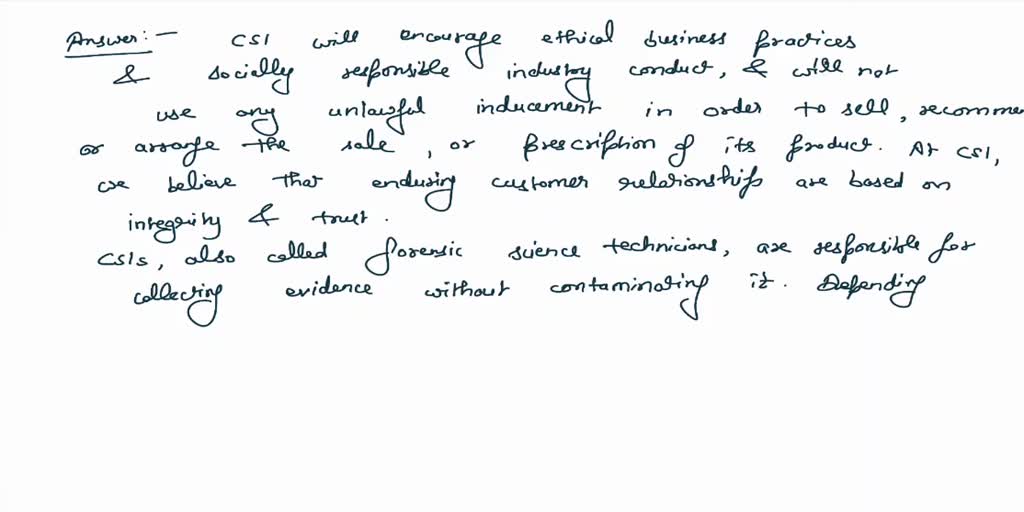 Answer:-  CSI will encourage ethical business practices
& socially responsible industry conduct, & will not
use any unlawful inducement in order to sell, recomme
or arrange the sale, or prescription of its product. At CSI,
we believe that enduring customer relationships are based on
integrity & trust.
CSIs, also called forensic science technicians, are responsible for
collecting evidence without contaminating it. Depending